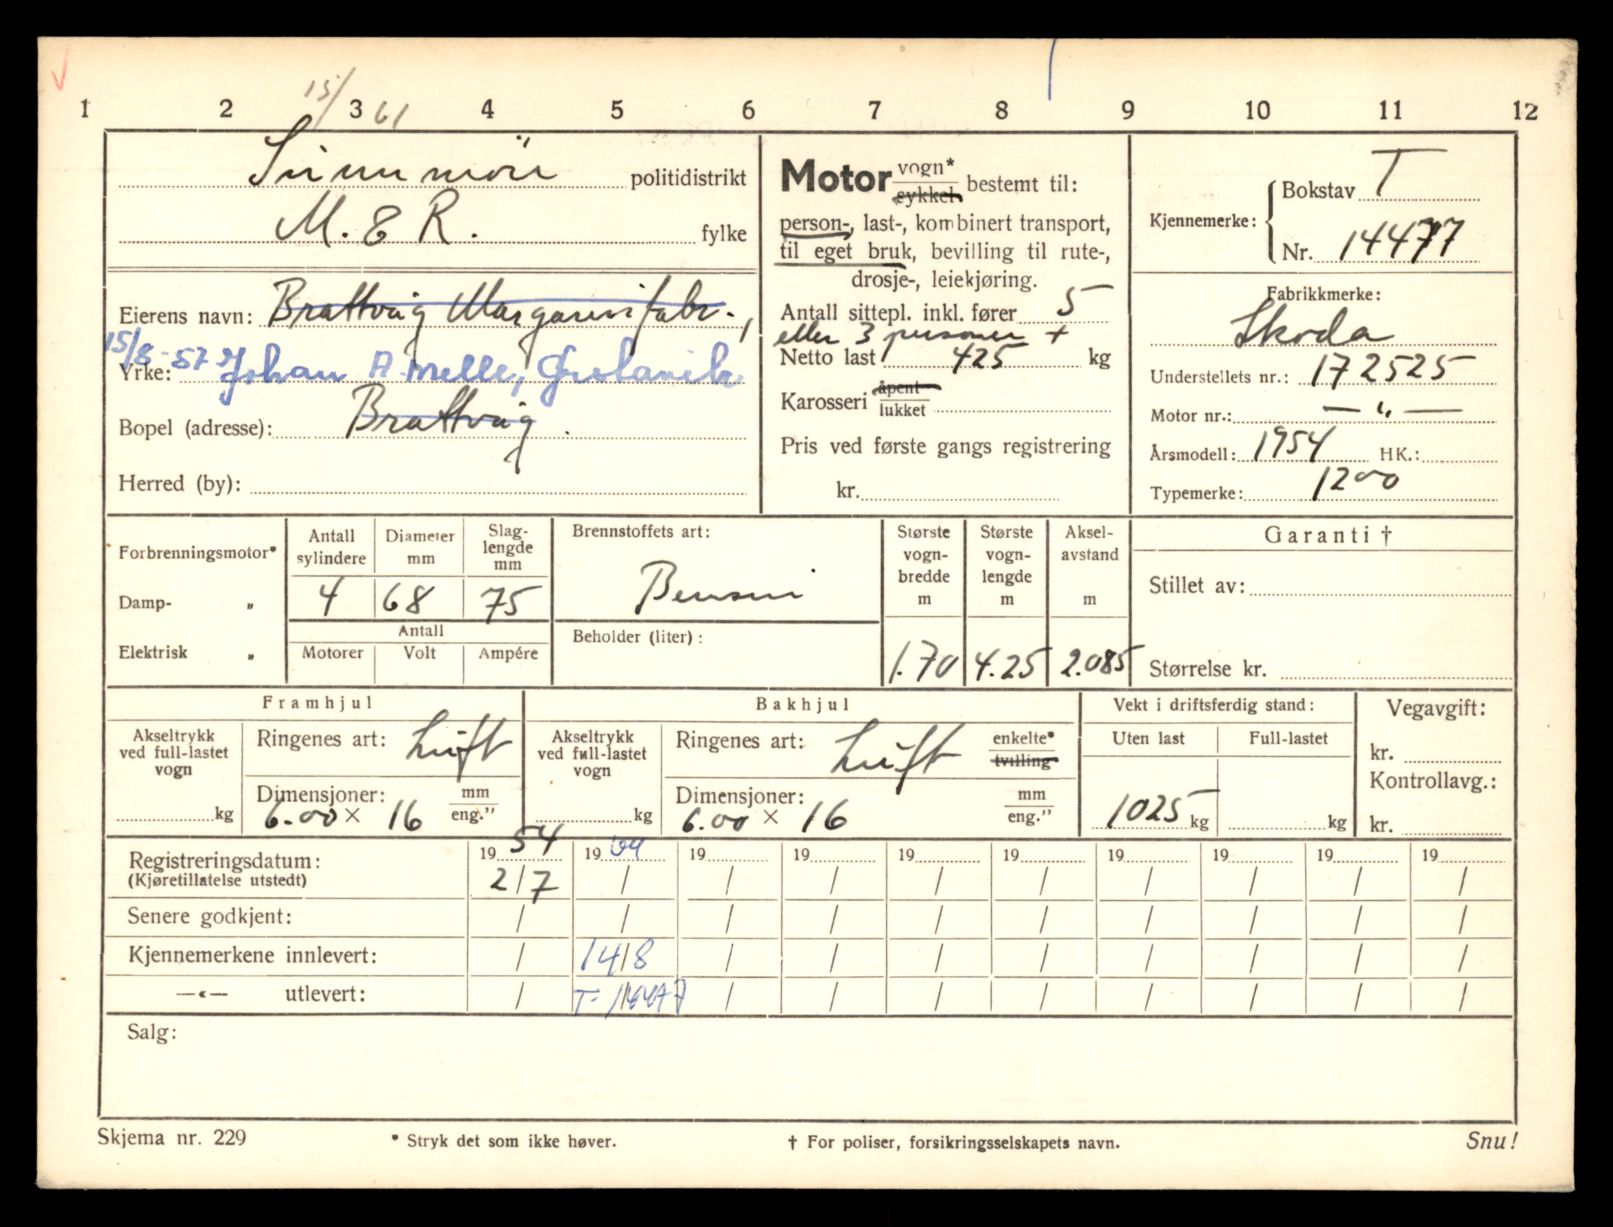 1 2 3 4 5 6 7 8 9 10 11 12
15/ 61
Sunnmöre politidistrikt
M. & R. fylke
Eierens navn: Brattvåg Margarinfabr.,
15/8-57 Johan A. Melle,
Yrke:
Bopel (adresse): Brattvåg.
Herred (by):
Motor vogn* sykkel bestemt til:
person-, last-, kombinert transport,
til eget bruk, bevilling til rute-,
drosje-, leiekjøring.
Antall sittepl. inkl. fører 5
eller 3 personer +
Netto last 425 kg
Karosseri åpent lukket
Pris ved første gangs registrering
kr.
Kjennemerke: Bokstav T
Nr. 14477
Fabrikkmerke:
Skoda
Understellets nr.: 172525
Motor nr.: — " —
Årsmodell: 1954 HK.:
Typemerke: 1200
Forbrenningsmotor*
Damp- "
Elektrisk "
Antall sylindere Diameter mm Slag-lengde mm
4 68 75
Antall
Motorer Volt Ampére
Brennstoffets art:
Bensin
Beholder (liter):
Største vogn-bredde m Største vogn-lengde m Aksel-avstand m
1.70 4.25 2.085
Garanti †
Stillet av:
Størrelse kr.
Framhjul
Akseltrykk ved full-lastet vogn
kg
Ringenes art: Luft
Dimensjoner: mm eng."
6.00 × 16
Bakhjul
Akseltrykk ved full-lastet vogn
kg
Ringenes art: Luft enkelte* tvilling
Dimensjoner: mm eng."
6.00 × 16
Vekt i driftsferdig stand:
Uten last Full-lastet
1025 kg kg
Vegavgift:
kr.
Kontrollavg.:
kr.
Registreringsdatum: 19 54 19 64 19 19 19 19 19 19 19 19
(Kjøretillatelse utstedt) 2/7 / / / / / / / / /
Senere godkjent: / / / / / / / / / /
Kjennemerkene innlevert: / 14/8 / / / / / / / /
—«— utlevert: / T-14477 / / / / / / / /
Salg:
Skjema nr. 229 * Stryk det som ikke høver. † For poliser, forsikringsselskapets navn. Snu!